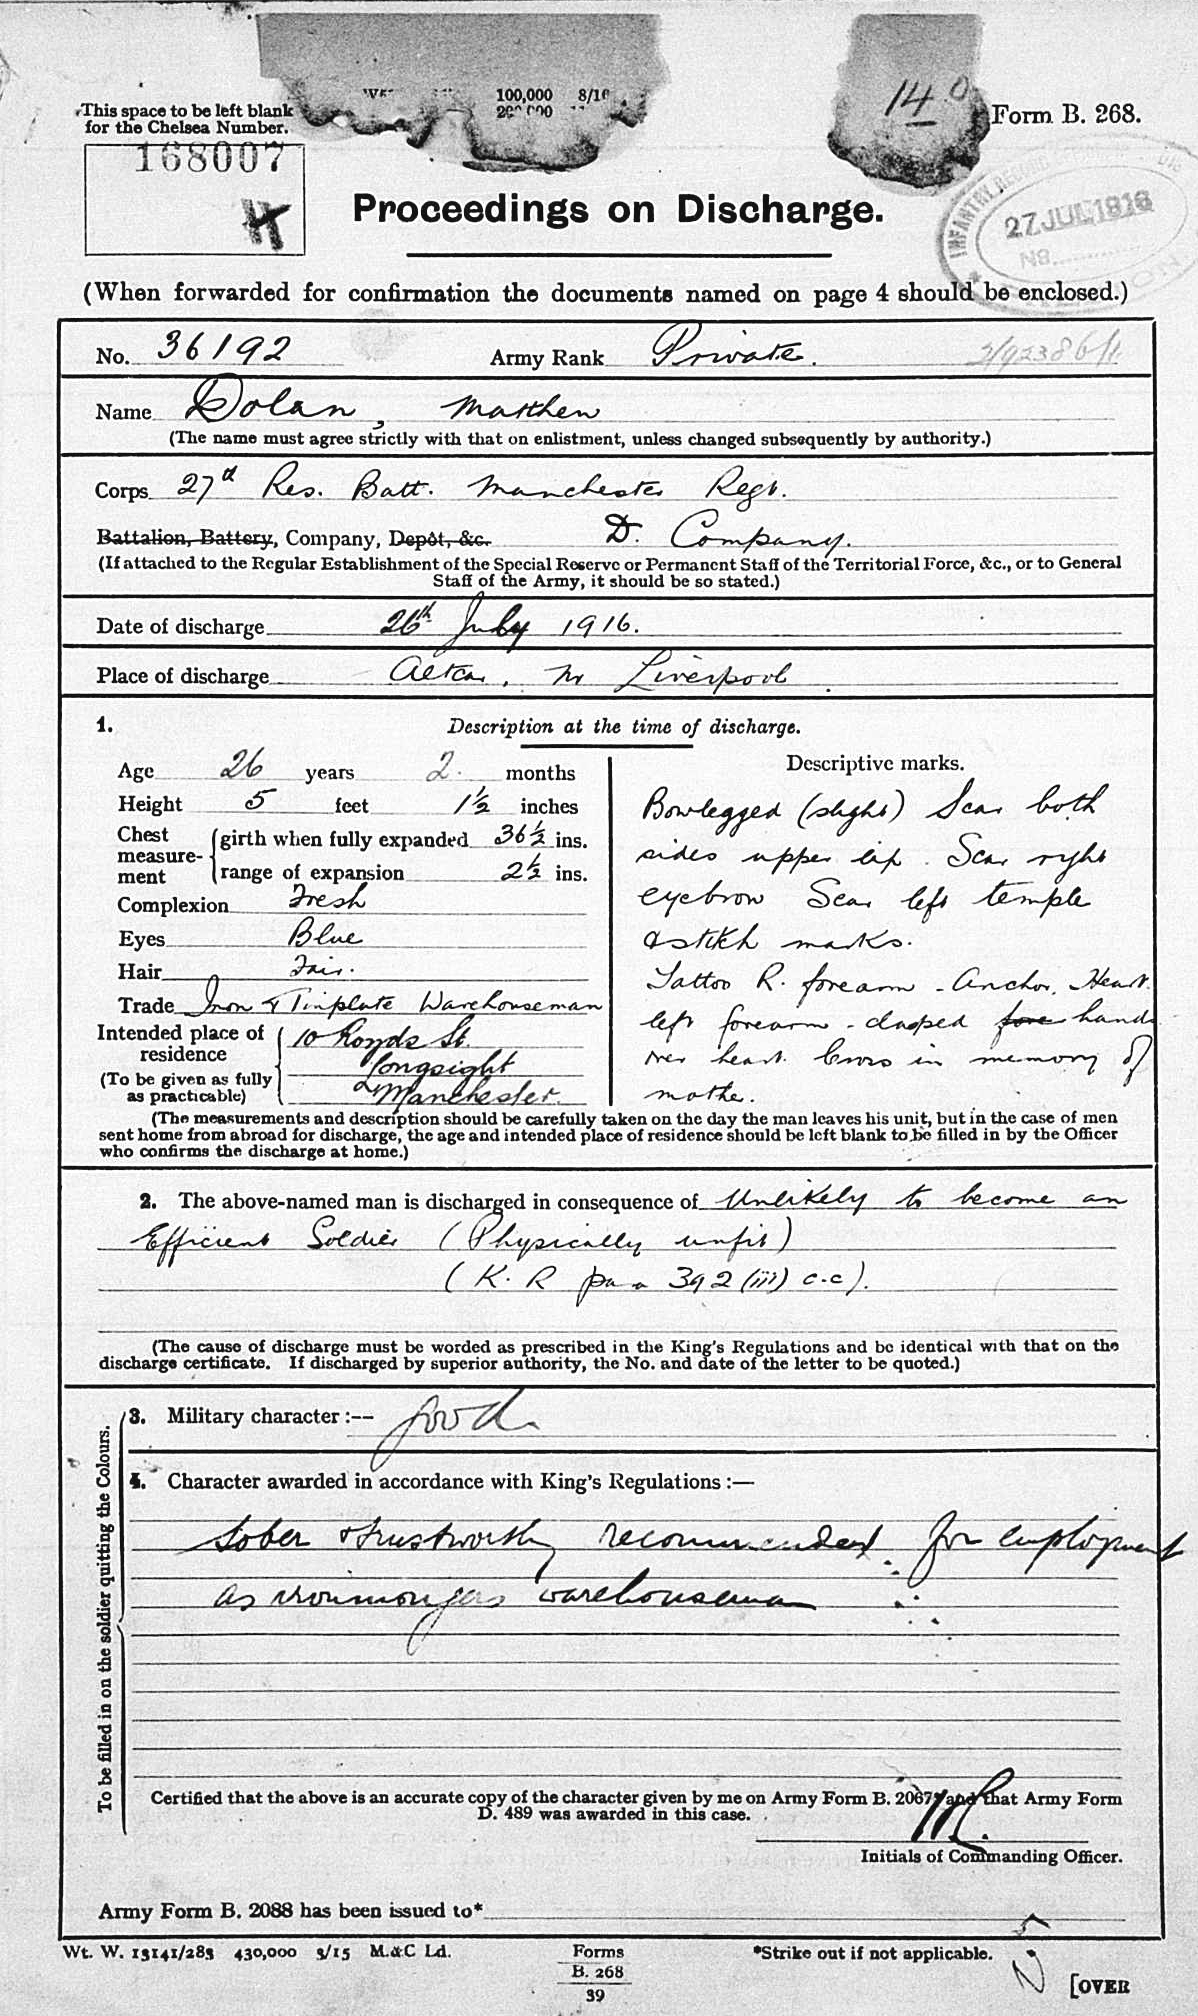 100,000 8/16
140
This space to be left blank
for the Chelsea Number.
Form B. 268.
168007
H
INFANTRY RECORD
27 JUL 1916
No.
Proceedings on Discharge.
(When forwarded for confirmation the documents named on page 4 should be enclosed.)
No. 36192 Army Rank Private.
Name Dolan, Matthew
(The name must agree strictly with that on enlistment, unless changed subsequently by authority.)
Corps 27th Res. Batt. Manchester Regt.
Battalion, Battery, Company, Depôt, &c. D. Company.
(If attached to the Regular Establishment of the Special Reserve or Permanent Staff of the Territorial Force, &c., or to General
Staff of the Army, it should be so stated.)
Date of discharge 26th July 1916.
Place of discharge Altcar, Nr Liverpool.
1. Description at the time of discharge.
Age 26 years 2. months
Height 5 feet 1½ inches
Chest measure-ment girth when fully expanded 36½ ins.
range of expansion 2½ ins.
Complexion Fresh
Eyes Blue
Hair Fair.
Trade Iron & Tinplate Warehouseman
Intended place of residence 10 Royds St.
Longsight
(To be given as fully as practicable) Manchester.
Descriptive marks.
Bowlegged (slight) Scar both
sides upper lip. Scar right
eyebrow Scar left temple
& stitch marks.
Tattoo R. forearm - Anchor, Heart.
left forearm - clasped fore hands
over heart. Cross in memory of
mother.
(The measurements and description should be carefully taken on the day the man leaves his unit, but in the case of men
sent home from abroad for discharge, the age and intended place of residence should be left blank to be filled in by the Officer
who confirms the discharge at home.)
2. The above-named man is discharged in consequence of Unlikely to become an
Efficient Soldier (Physically unfit)
(K. R para 392 (iii) c.c).
(The cause of discharge must be worded as prescribed in the King's Regulations and be identical with that on the
discharge certificate. If discharged by superior authority, the No. and date of the letter to be quoted.)
To be filled in on the soldier quitting the Colours.
3. Military character :-- good.
4. Character awarded in accordance with King's Regulations :—
Sober & trustworthy recommended for employment
as ironmongers warehouseman
Certified that the above is an accurate copy of the character given by me on Army Form B. 2067* and that Army Form
D. 489 was awarded in this case.
Initials of Commanding Officer.
Army Form B. 2088 has been issued to*
Wt. W. 13141/283 430,000 3/15 M.&C Ld. Forms *Strike out if not applicable.
B. 268
39
[OVER